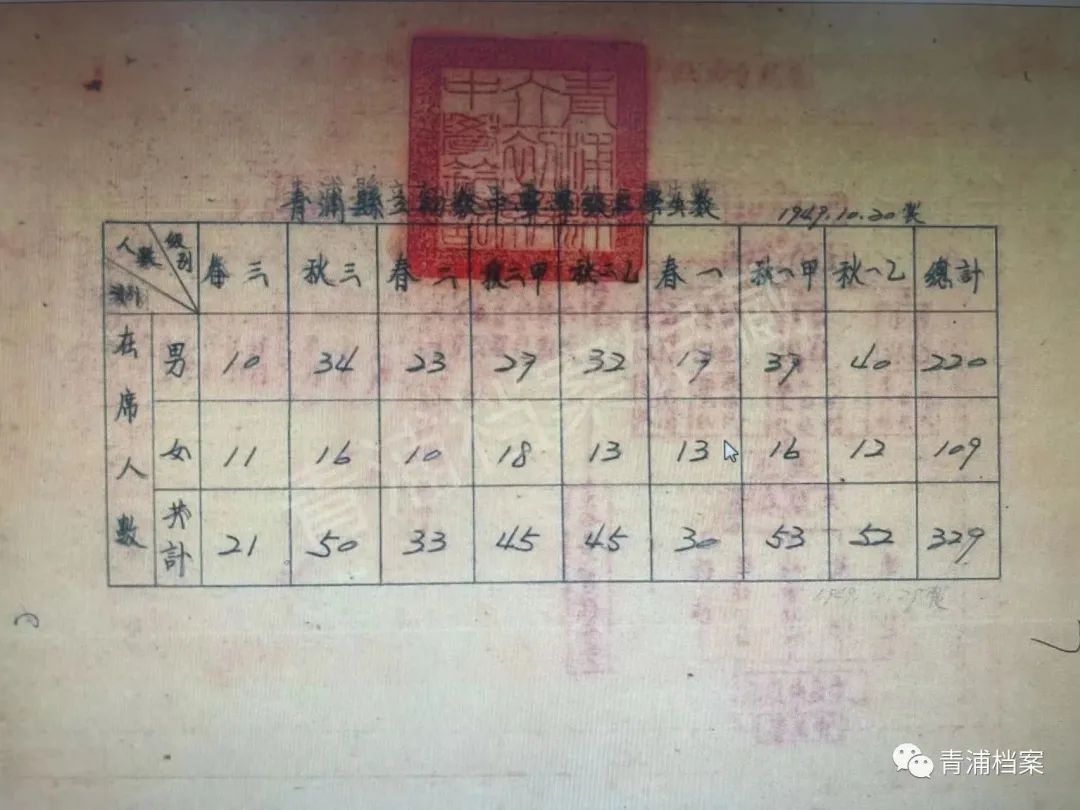 青浦縣立初級中學學級及學生數 1949.10.20製
人數 級別 春三 秋三 春二 秋二甲 秋二乙 春一 秋一甲 秋一乙 總計
在席人數 男 10 34 23 27 32 17 37 40 220
女 11 16 10 18 13 13 16 12 109
共計 21 50 33 45 45 30 53 52 329
青浦档案